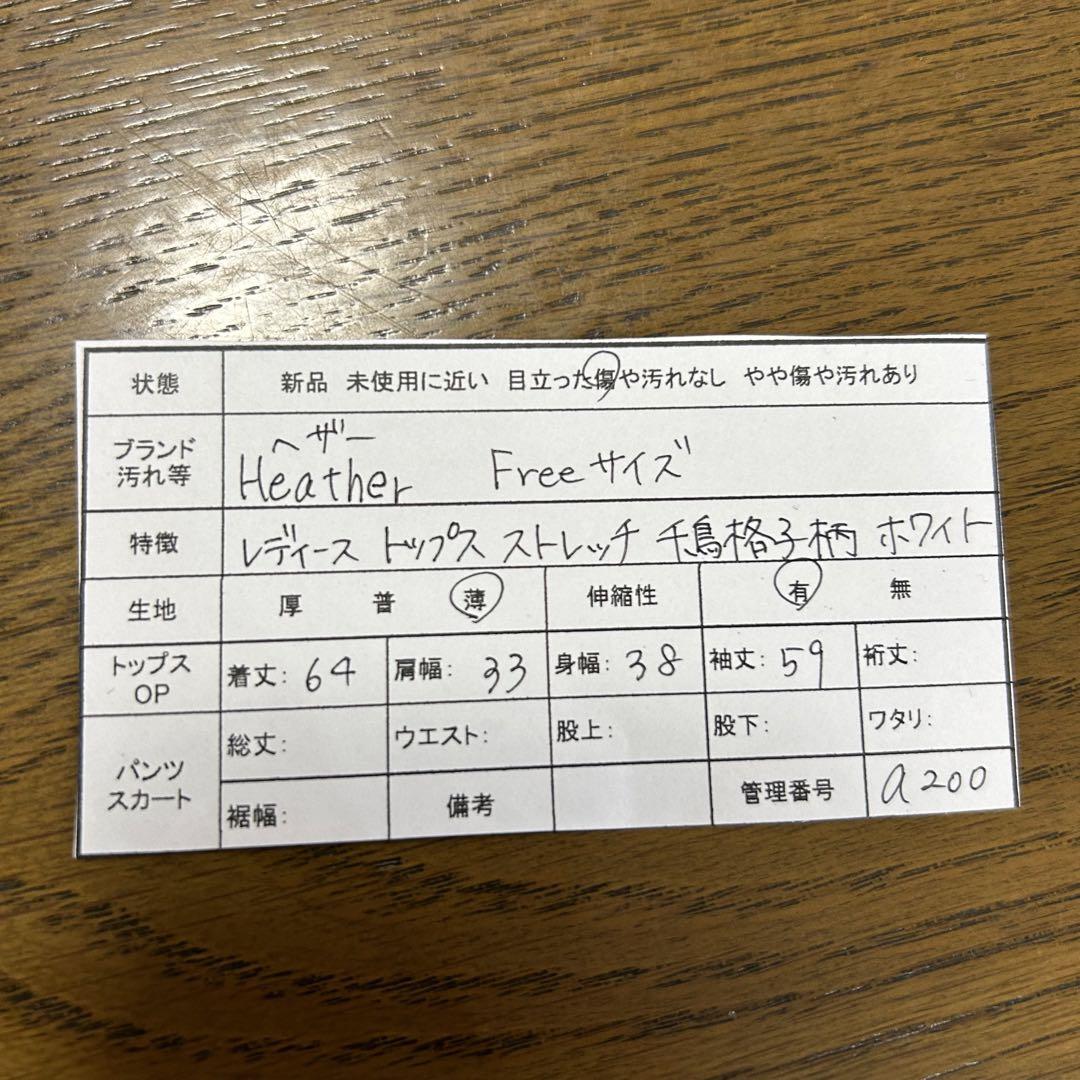 状態 新品 未使用に近い 目立った傷や汚れなし やや傷や汚れあり
ブランド汚れ等 ヘザー
Heather Freeサイズ
特徴 レディース トップス ストレッチ 千鳥格子柄 ホワイト
生地 厚 普 薄 伸縮性 有 無
トップス OP 着丈: 64 肩幅: 33 身幅: 38 袖丈: 59 裄丈:
パンツ スカート 総丈: ウエスト: 股上: 股下: ワタリ:
裾幅: 備考 管理番号 a200